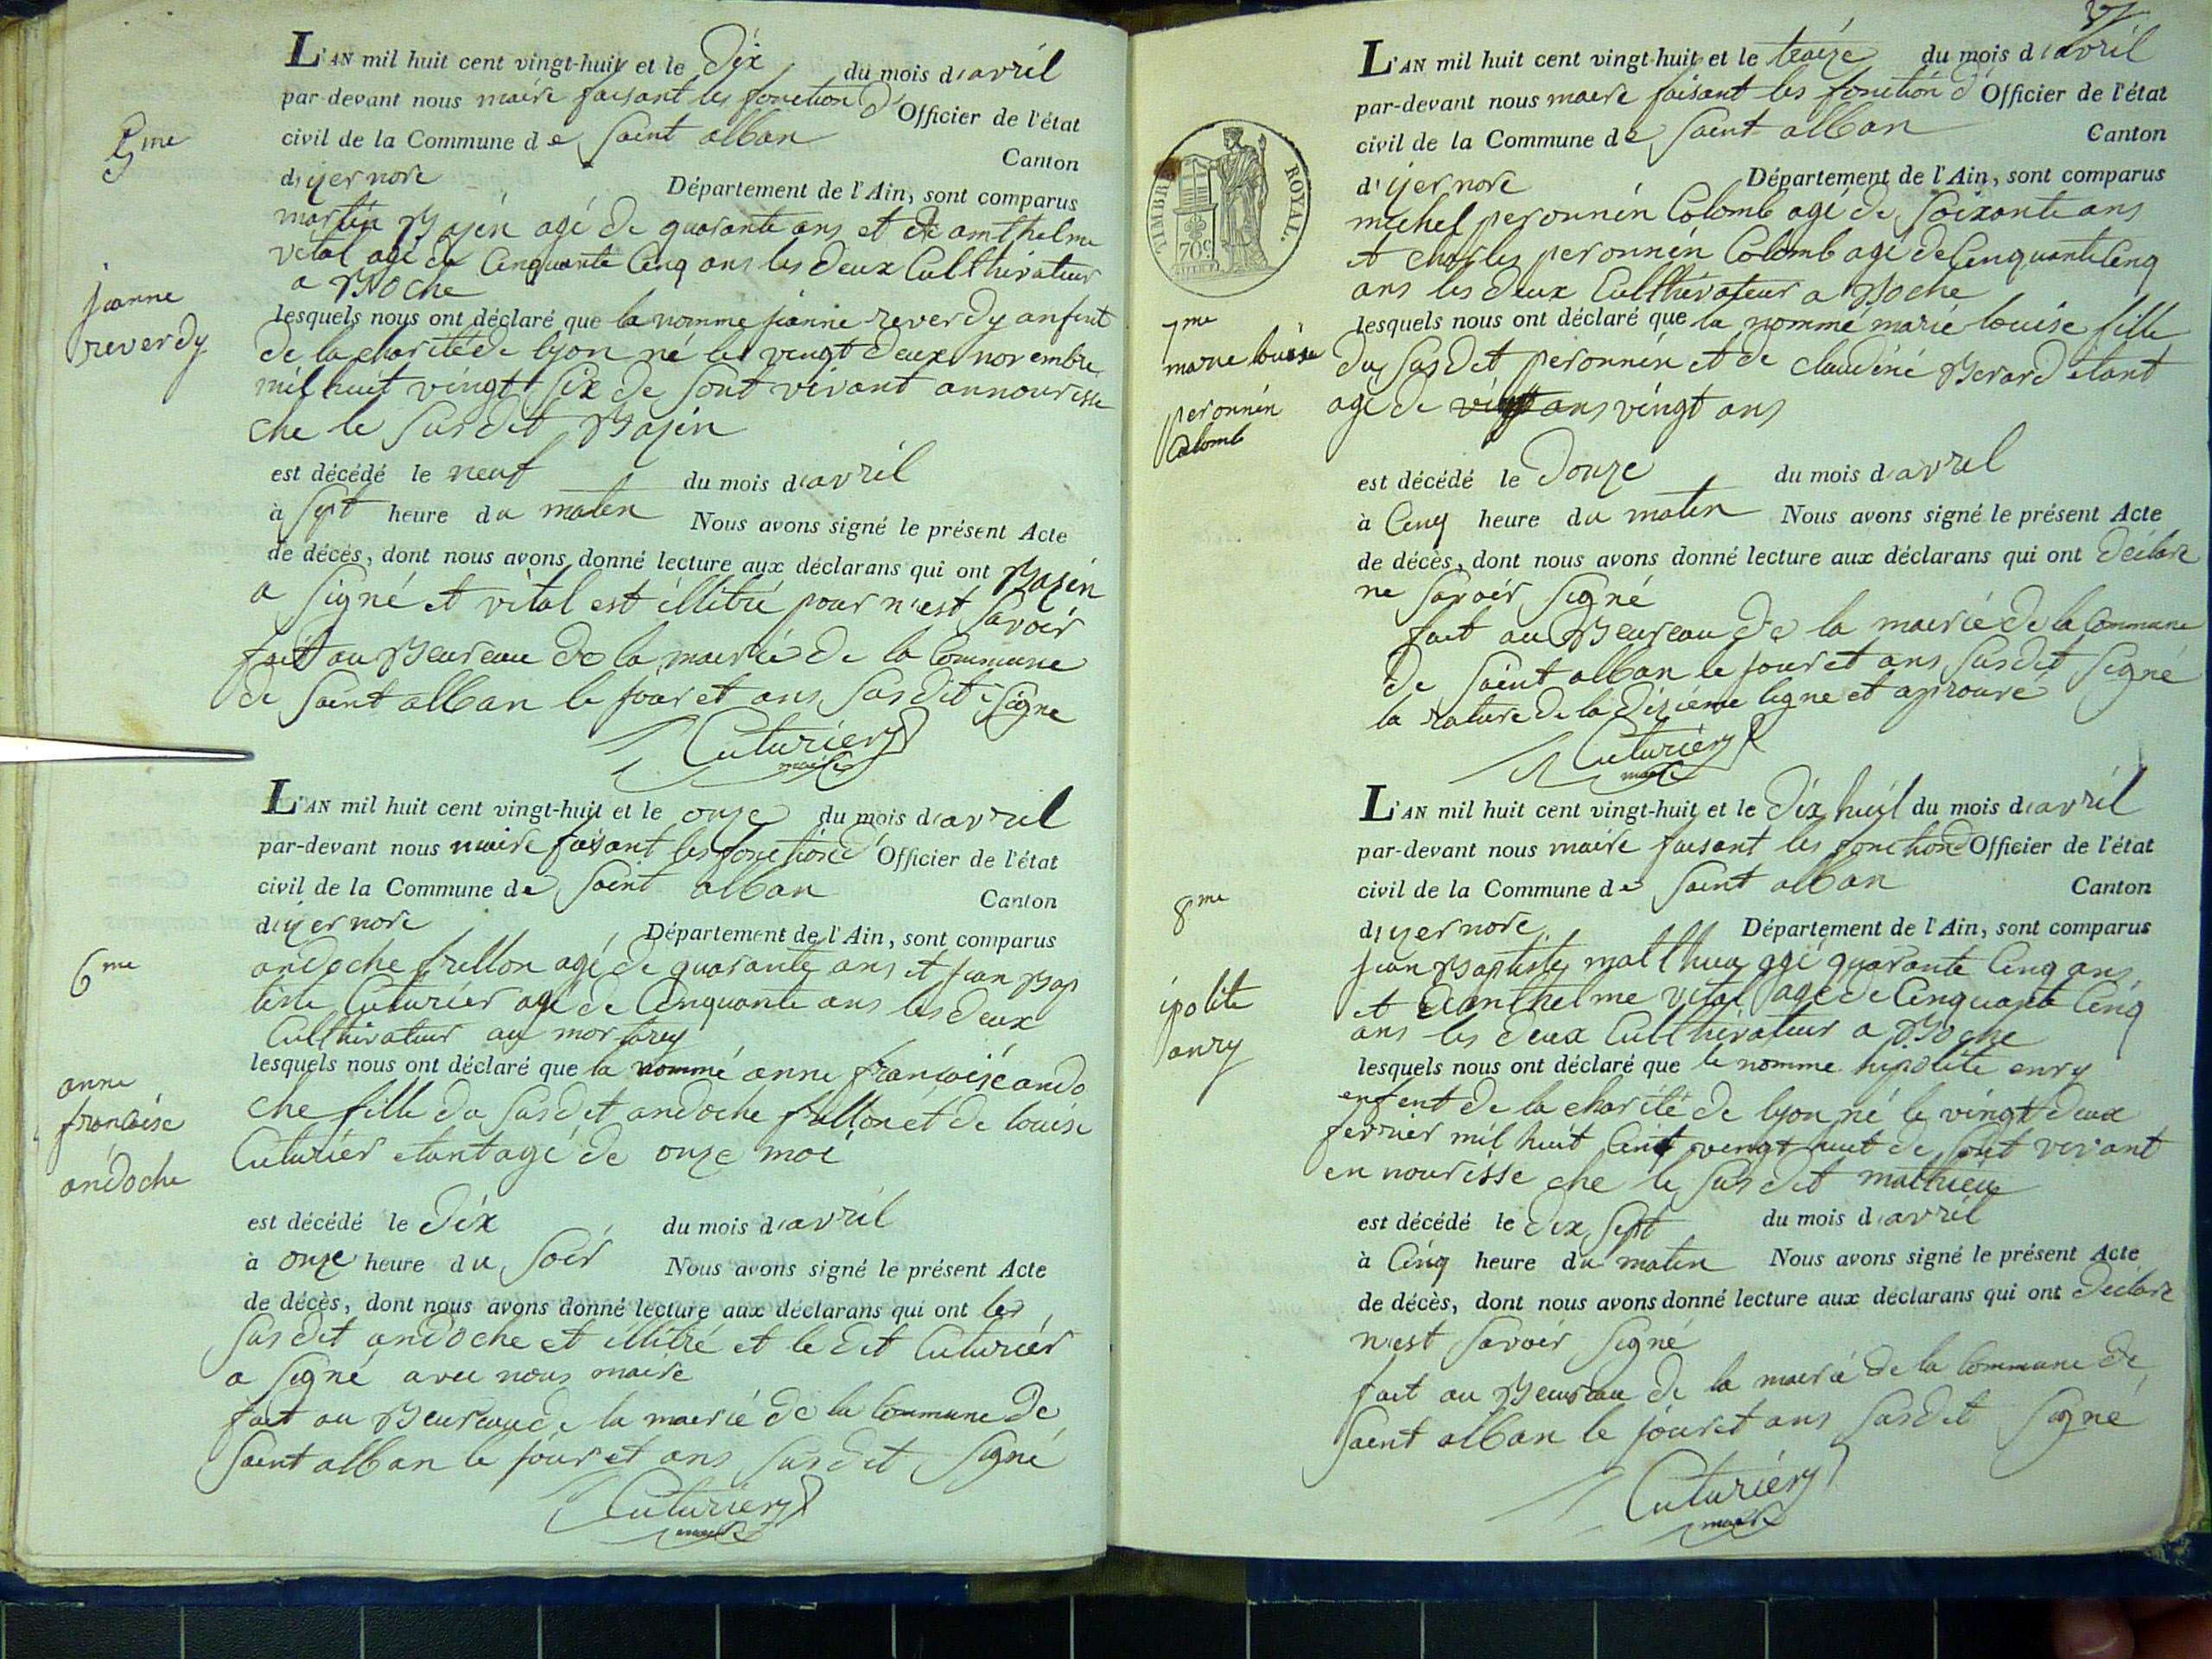 5me
janne
reverdy
L'AN mil huit cent vingt-huit et le Dix du mois d'avril
par-devant nous maire faisant les fonction d'Officier de l'état
civil de la Commune de Saint alban
Canton
d'yernore
Département de l'Ain, sont comparus
martin Basin agé de quarante ans et de amthelme
vital agé de Cinquante Cinq ans les deux Culthivateur
a Boche
lesquels nous ont déclaré que la nomme janne reverdy anfent
de la charité de lyon né le vingt deux novembre
mil huit vingt Six de Sont vivant annourisse
che le Susdit Basin
est décédé le neuf du mois d'avril
à Sept heure du maten Nous avons signé le présent Acte
de décès, dont nous avons donné lecture aux déclarans qui ont Basin
a Signé et vital est illitré pour n'est Savoir
fait au Beureau de la mairie de la Commune
de Saint alban le jour et ans Susdit Signe
Cuturier
maire
6me
anne
francoise
andoche
L'AN mil huit cent vingt-huit et le onze du mois d'avril
par-devant nous maire faisant les fonction d'Officier de l'état
civil de la Commune de Saint alban
Canton
d'yernore
Département de l'Ain, sont comparus
andoche frillon agé de quarante ans et jean Bap
tiste Cuturier agé de Cinquante ans les deux
Culthivateur au mortarey
lesquels nous ont déclaré que la nommé anne françoise ando
che fille du Susdit andoche frillon et de louise
Cuturier etant agé de onze moi
est décédé le Dix du mois d'avril
à onze heure du Soir Nous avons signé le présent Acte
de décès, dont nous avons donné lecture aux déclarans qui ont les
Susdit andoche et illitré et le dit Cuturier
a Signé avec nous maire
fait au Beureau de la mairie de la Commune de
Saint alban le jour et ans Susdit Signé
Cuturier
maire
TIMBRE ROYAL.
70c.
7me
marie louise
peronnin
Colomb
L'AN mil huit cent vingt-huit et le traize du mois d'avril
par-devant nous maire faisant les fonction d'Officier de l'état
civil de la Commune de Saint alban Canton
d'yernore Département de l'Ain, sont comparus
michel peronnin Colomb agé de Soixante ans
et charles peronnin Colomb agé de Cinquante Cinq
ans les deux Culthivateur a Boche
lesquels nous ont déclaré que la nommé marie louise fille
du Susdit peronnin et de claudine Berard etant
agé de vingt ans vingt ans
est décédé le Douze du mois d'avril
à Cinq heure du matin Nous avons signé le présent Acte
de décès, dont nous avons donné lecture aux déclarans qui ont Déclaré
ne Savoir Signé
fait au Beureau de la mairie de la Commune
de Saint alban le jour et ans Susdit Signé
la rature de la Dixième ligne et aprouvé
Cuturier
maire
8me
ipolite
anry
L'AN mil huit cent vingt-huit et le Dix huit du mois d'avril
par-devant nous maire faisant les fonction d'Officier de l'état
civil de la Commune de Saint alban Canton
d'yernore Département de l'Ain, sont comparus
jean Baptiste matthieu agé quarante Cinq ans
et de anthelme vital agé de Cinquante Cinq
ans les deux Culthivateur a Boche
lesquels nous ont déclaré que le nomme hipolite enry
enfent de la charité de lyon né le vingt deux
fevrier mil huit Cent vingt huit de Sont vivant
en nourisse che le Susdit mathieu
est décédé le dix Sept du mois d'avril
à Cinq heure du maten Nous avons signé le présent Acte
de décès, dont nous avons donné lecture aux déclarans qui ont Déclaré
n'est Savoir Signé
fait au Beureau de la mairie de la Commune de
Saint alban le jour et ans Susdit Signé
Cuturier
maire